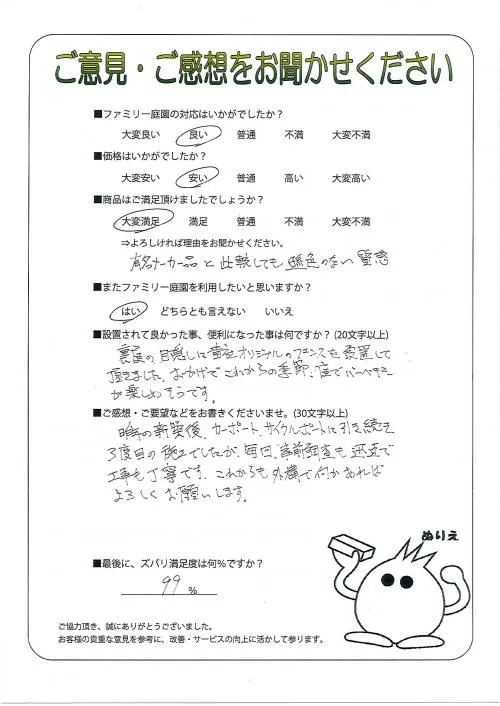 ご意見・ご感想をお聞かせください
■ファミリー庭園の対応はいかがでしたか？
大変良い 良い 普通 不満 大変不満
■価格はいかがでしたか？
大変安い 安い 普通 高い 大変高い
■商品はご満足頂けましたでしょうか？
大変満足 満足 普通 不満 大変不満
⇒よろしければ理由をお聞かせください。
有名メーカー品と比較しても遜色のない質感
■またファミリー庭園を利用したいと思いますか？
はい どちらとも言えない いいえ
■設置されて良かった事、便利になった事は何ですか？(20文字以上)
裏庭の目隠しに貴社オリジナルのフェンスを設置して
頂きました。おかげでこれからの季節、庭でバーベキュー
が楽しめそうです。
■ご感想・ご要望などをお書きくださいませ。(30文字以上)
昨年の新築後、カーポート、サイクルポートに引き続き
3度目の施工でしたが、毎回、事前調査も迅速で
工事も丁寧です。これからも外構で何かあれば
よろしくお願いします。
ぬりえ
■最後に、ズバリ満足度は何%ですか？
99 %
ご協力頂き、誠にありがとうございました。
お客様の貴重な意見を参考に、改善・サービスの向上に活かして参ります。